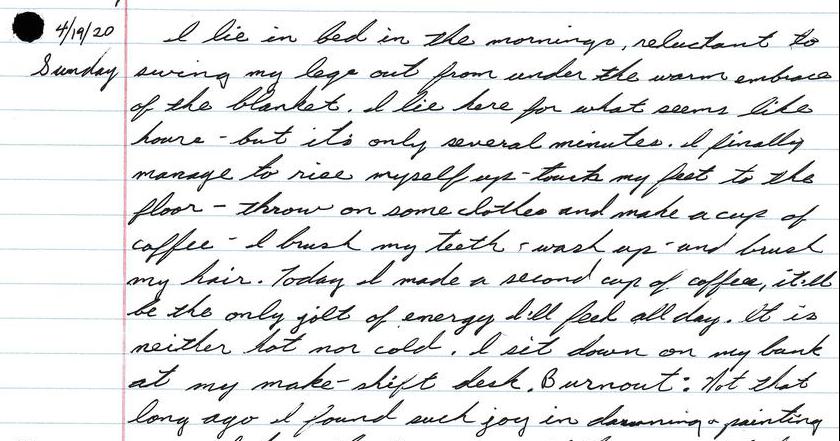 4/19/20 I lie in bed in the mornings, reluctant to
Sunday swing my legs out from under the warm embrace
of the blanket. I lie here for what seems like
hours - but it's only several minutes. I finally
manage to rise myself up - touch my feet to the
floor - throw on some clothes and make a cup of
coffee - I brush my teeth - wash up - and brush
my hair. Today I made a second cup of coffee, it'll
be the only jolt of energy I'll feel all day. It is
neither hot nor cold. I sit down on my bunk
at my make-shift desk. Burnout: Not that
long ago I found such joy in + painting